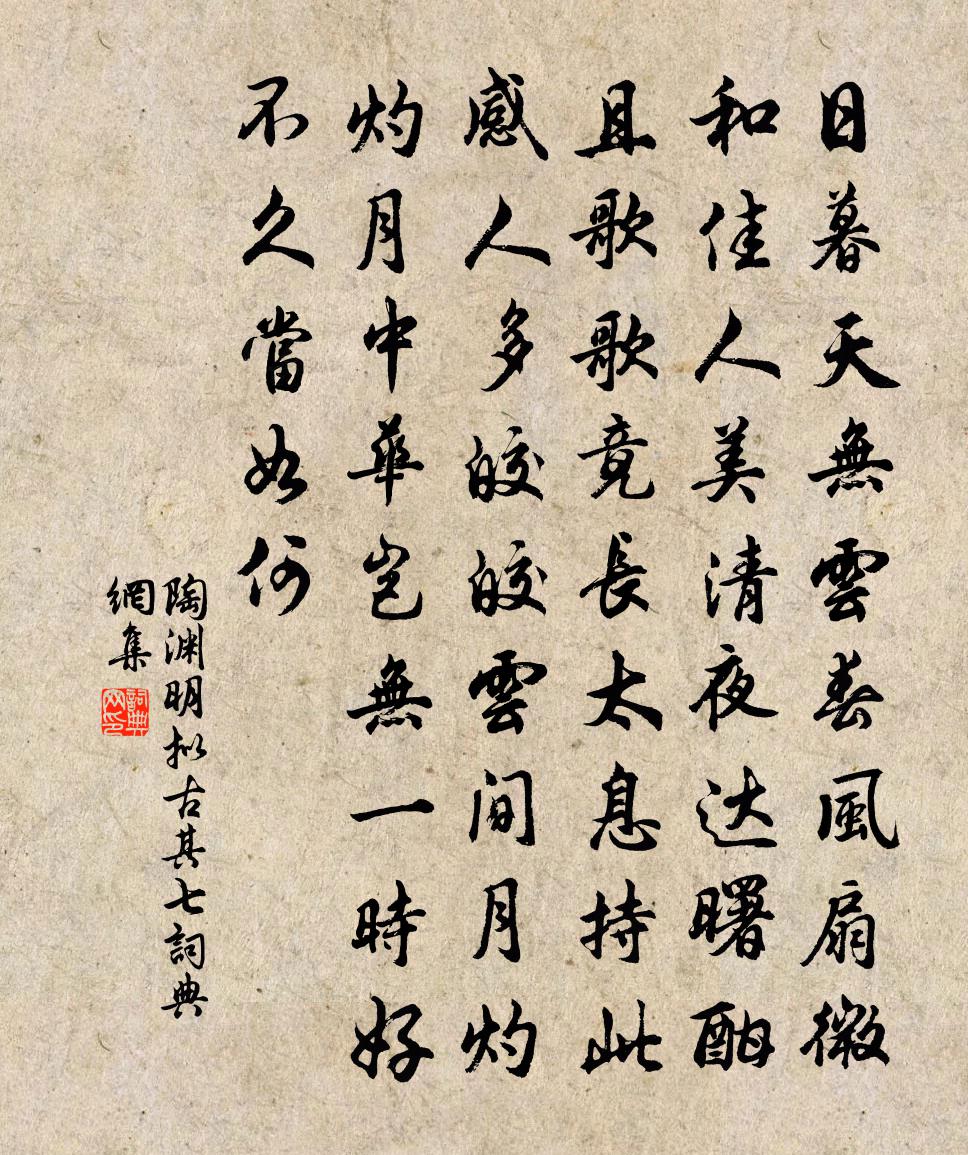 日暮天無雲春風扇微
和佳人美清夜达曙酣
且歌歌竟長太息持此
感人多皎皎雲间月灼
灼月中華岂無一時好
不久當如何
陶渊明拟古其七詞典
網集
詞典
网印